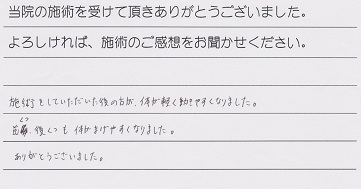 当院の施術を受けて頂きありがとうございました。
よろしければ、施術のご感想をお聞かせください。
施術をしていただいた後の方が、体が軽く動きやすくなりました。
くつ
後くつも 体がまげやすくなりました。
ありがとうございました。